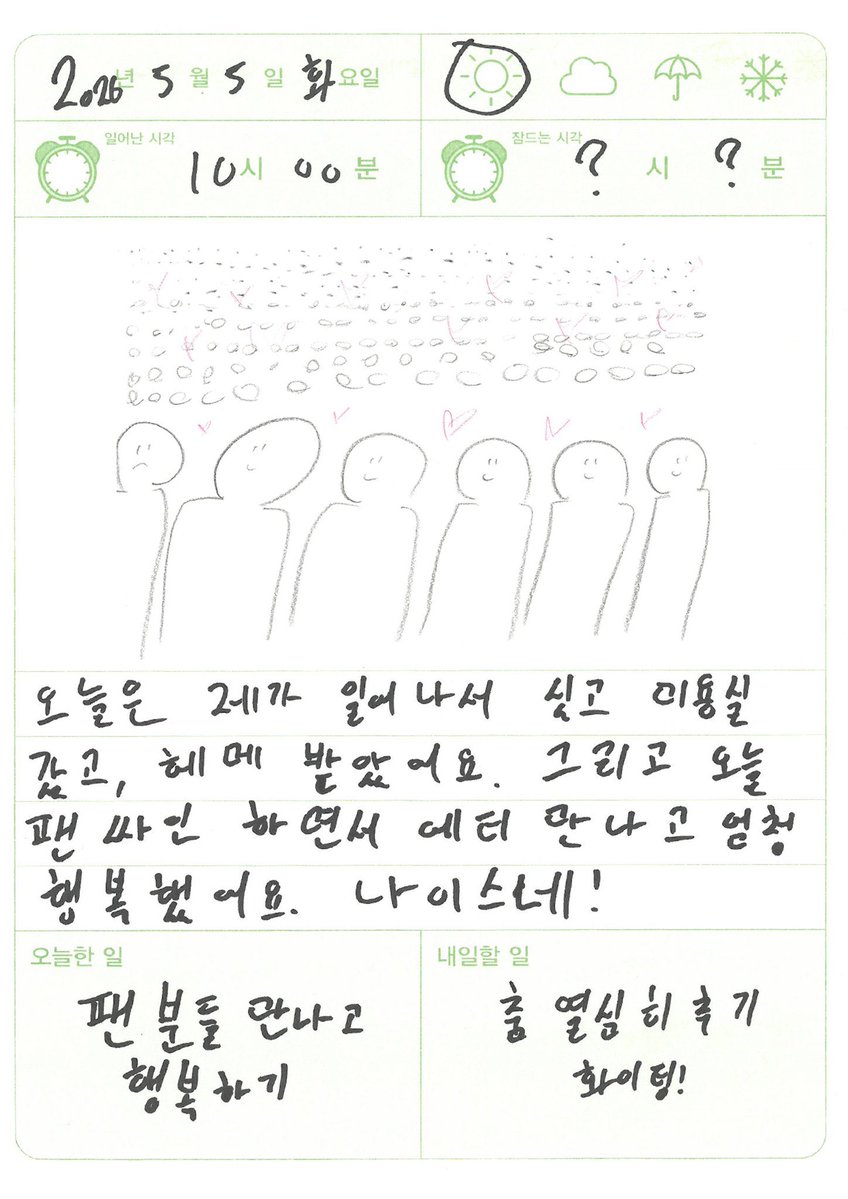 2026년 5월 5일 화요일
일어난 시각
10시 00분
잠드는 시각
?시 ?분
오늘은 제가 일어나서 씻고 미용실
갔고, 헤메 받았어요. 그리고 오늘
팬싸인 하면서 에터 만나고 엄청
행복했어요. 나이스네!
오늘한 일
팬분들 만나고
행복하기
내일할 일
춤 열심히 추기
화이팅!